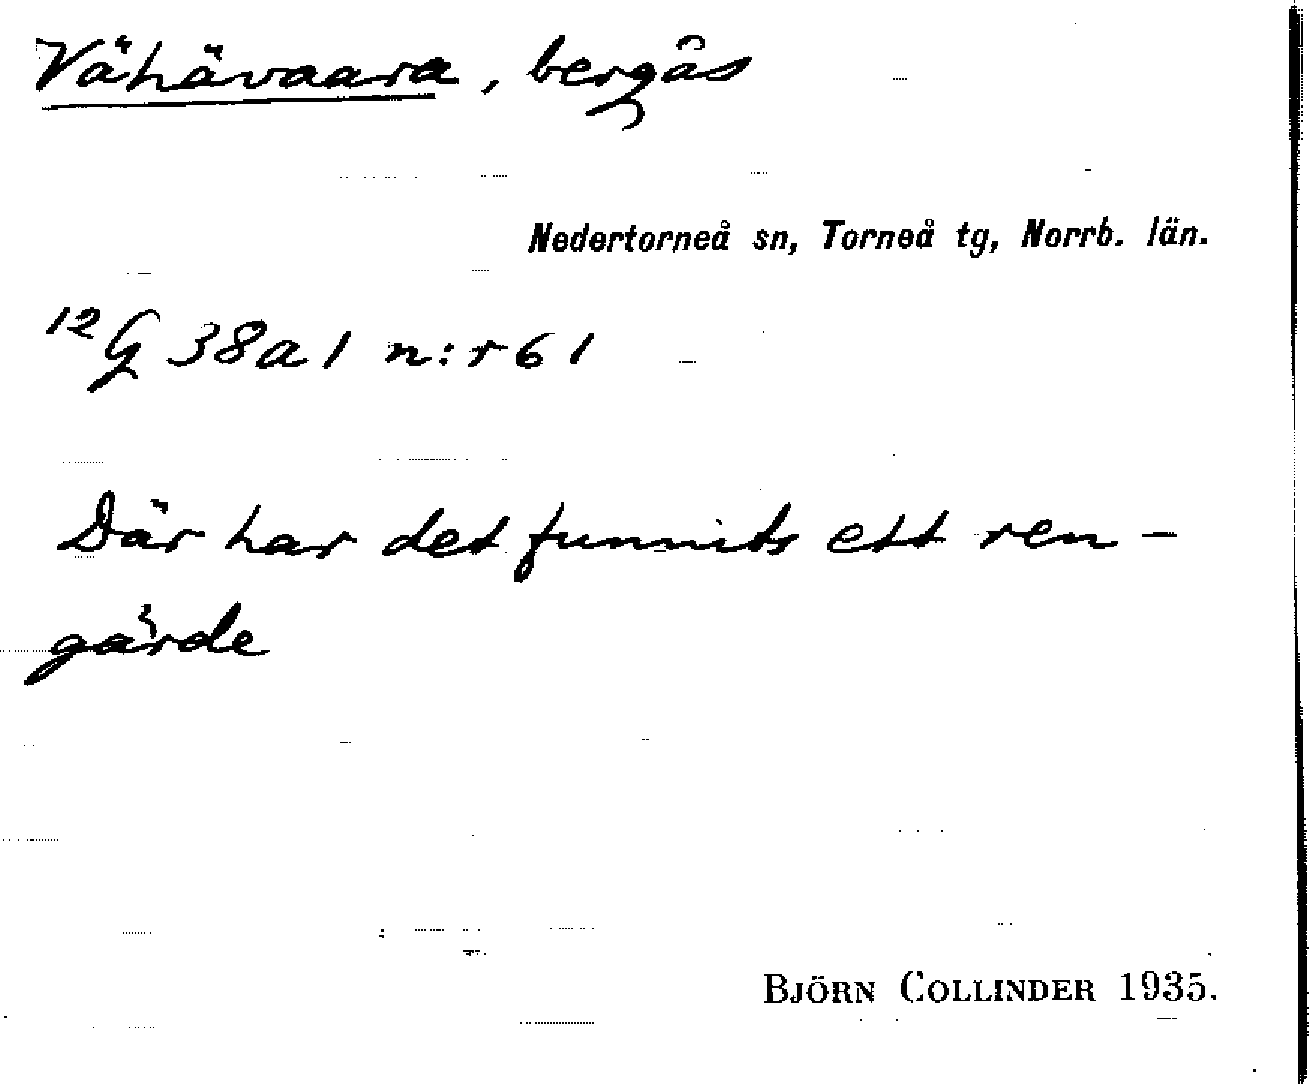 Vähävaara, bergås
Nedertorneå sn, Torneå tg, Norrb. län.
12G 38a1 n:r 61
Där har det funnits ett ren-
gärde
BJÖRN COLLINDER 1935.